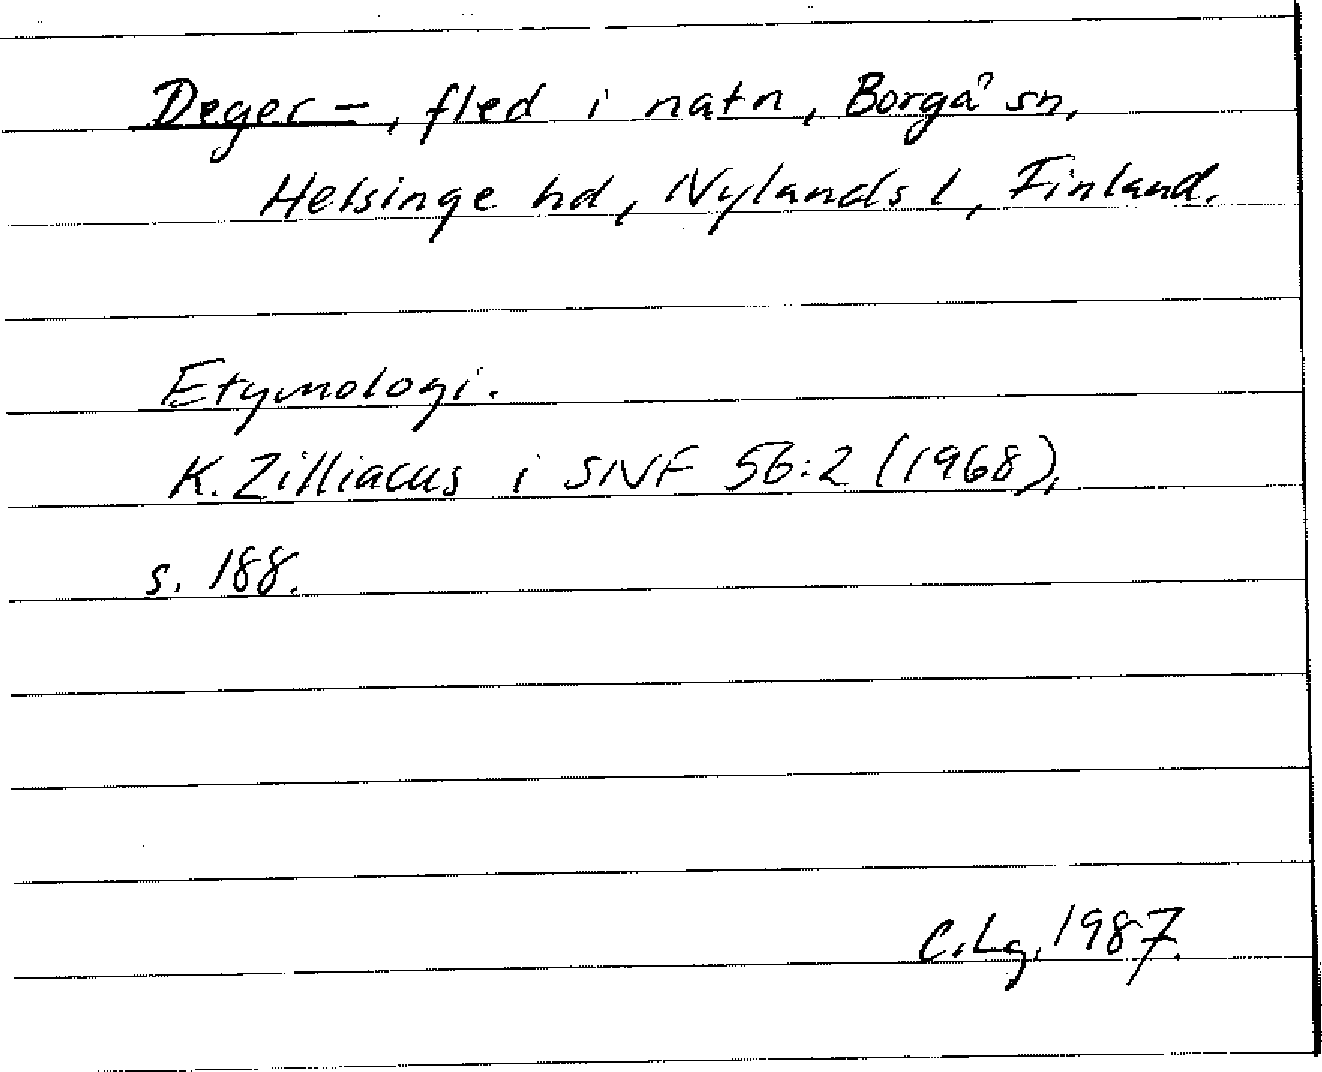 Deger-, fled i natn, Borgå sn,
Helsinge hd, Nylands l, Finland.
Etymologi.
K. Zilliacus i SNF 56:2 (1968),
s. 188.
C. Lg. 1987.